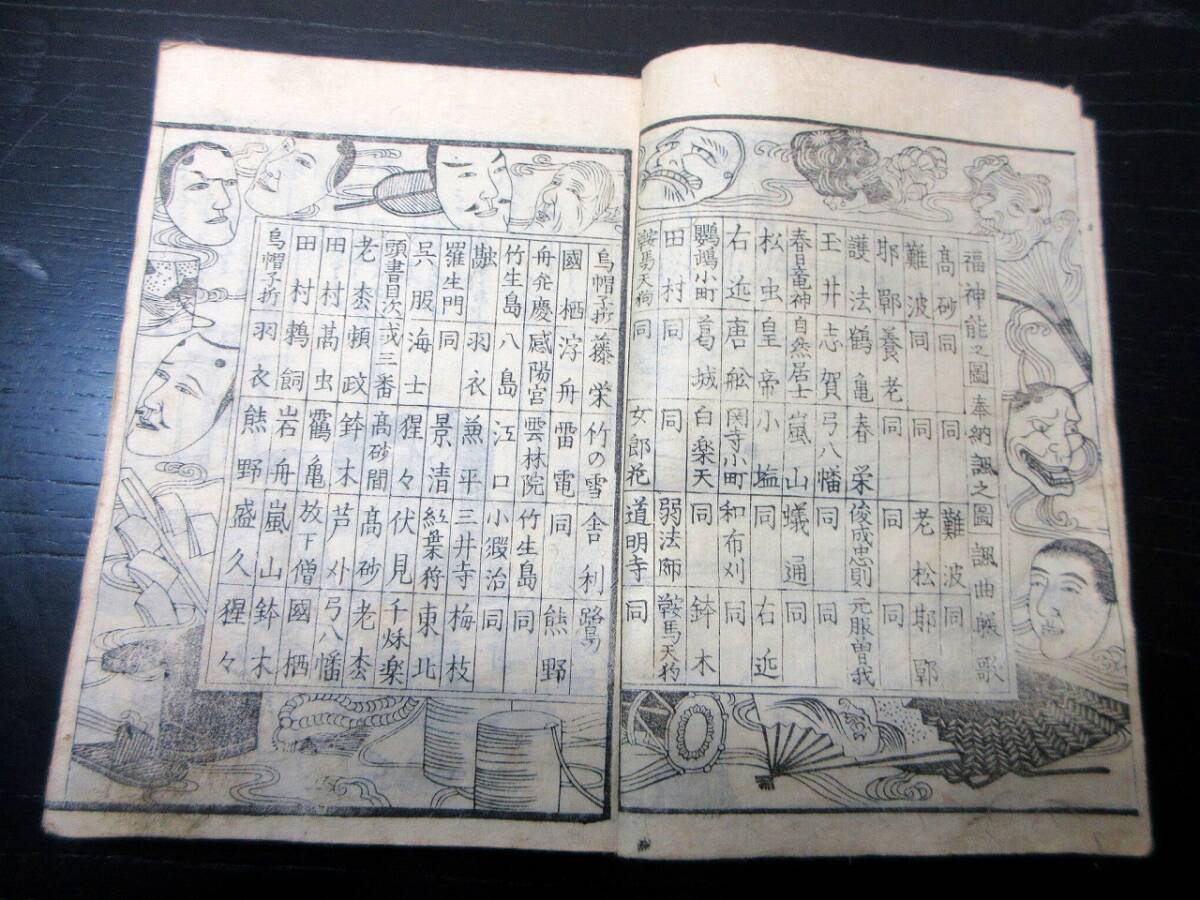 福神能之圖 奉納諷之圖 諷曲賑歌
髙砂 同 同 難波 同
難波 同 同 老松 耶鄲
耶鄲 養老 同 同 同
護法 鶴亀 春栄 俊成忠則 元服曽我
玉井 志賀 弓八幡 同 同
春日竜神 自然居士 嵐山 蟻通 同
松虫 皇帝 小塩 同 右近
右近 唐舩 関寺小町 和布刈 同
鸚鵡小町 葛城 白楽天 同 鉢木
田村 同 同 弱法師 鞍馬天狗
鞍馬天狗 同 女郎花 道明寺 同
烏帽子折 藤栄 竹の雪 舎利
國栖 浮舟 雷電 同 熊野
舟弁慶 咸陽宮 雲林院 竹生島 同
竹生島 八島 江口 小鍛治 同
融 羽衣 兼平 三井寺 梅枝
羅生門 同 景清 紅葉狩 東北
呉服 海士 猩々 伏見 千秌楽
頭書目次 弐三番 髙砂 間 髙砂 老枩
老枩 頼政 鉢木 芦刈 弓八幡
田村 髙虫 鶴亀 放下僧 國栖
田村 鵜飼 岩舟 嵐山 鉢木
烏帽子折 羽衣 熊野 盛久 猩々